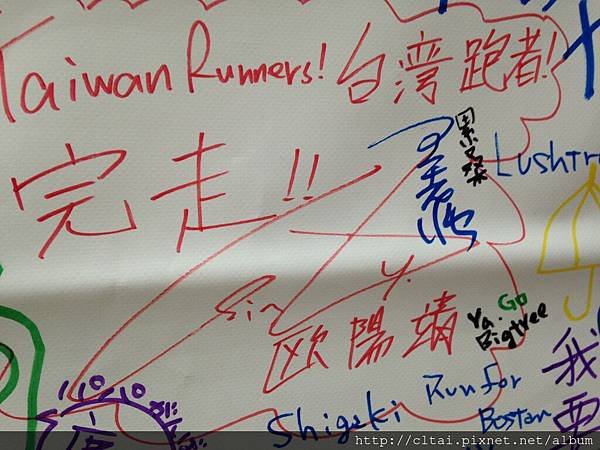 Taiwan Runners! 台湾跑者!
完走!!
累又桑
Lushtr
Sin Y.
欧陽靖
Ya.Go
Bigtree
Shigeki
Run for
Boston
我
要
http://cltai.pixnet.net/album